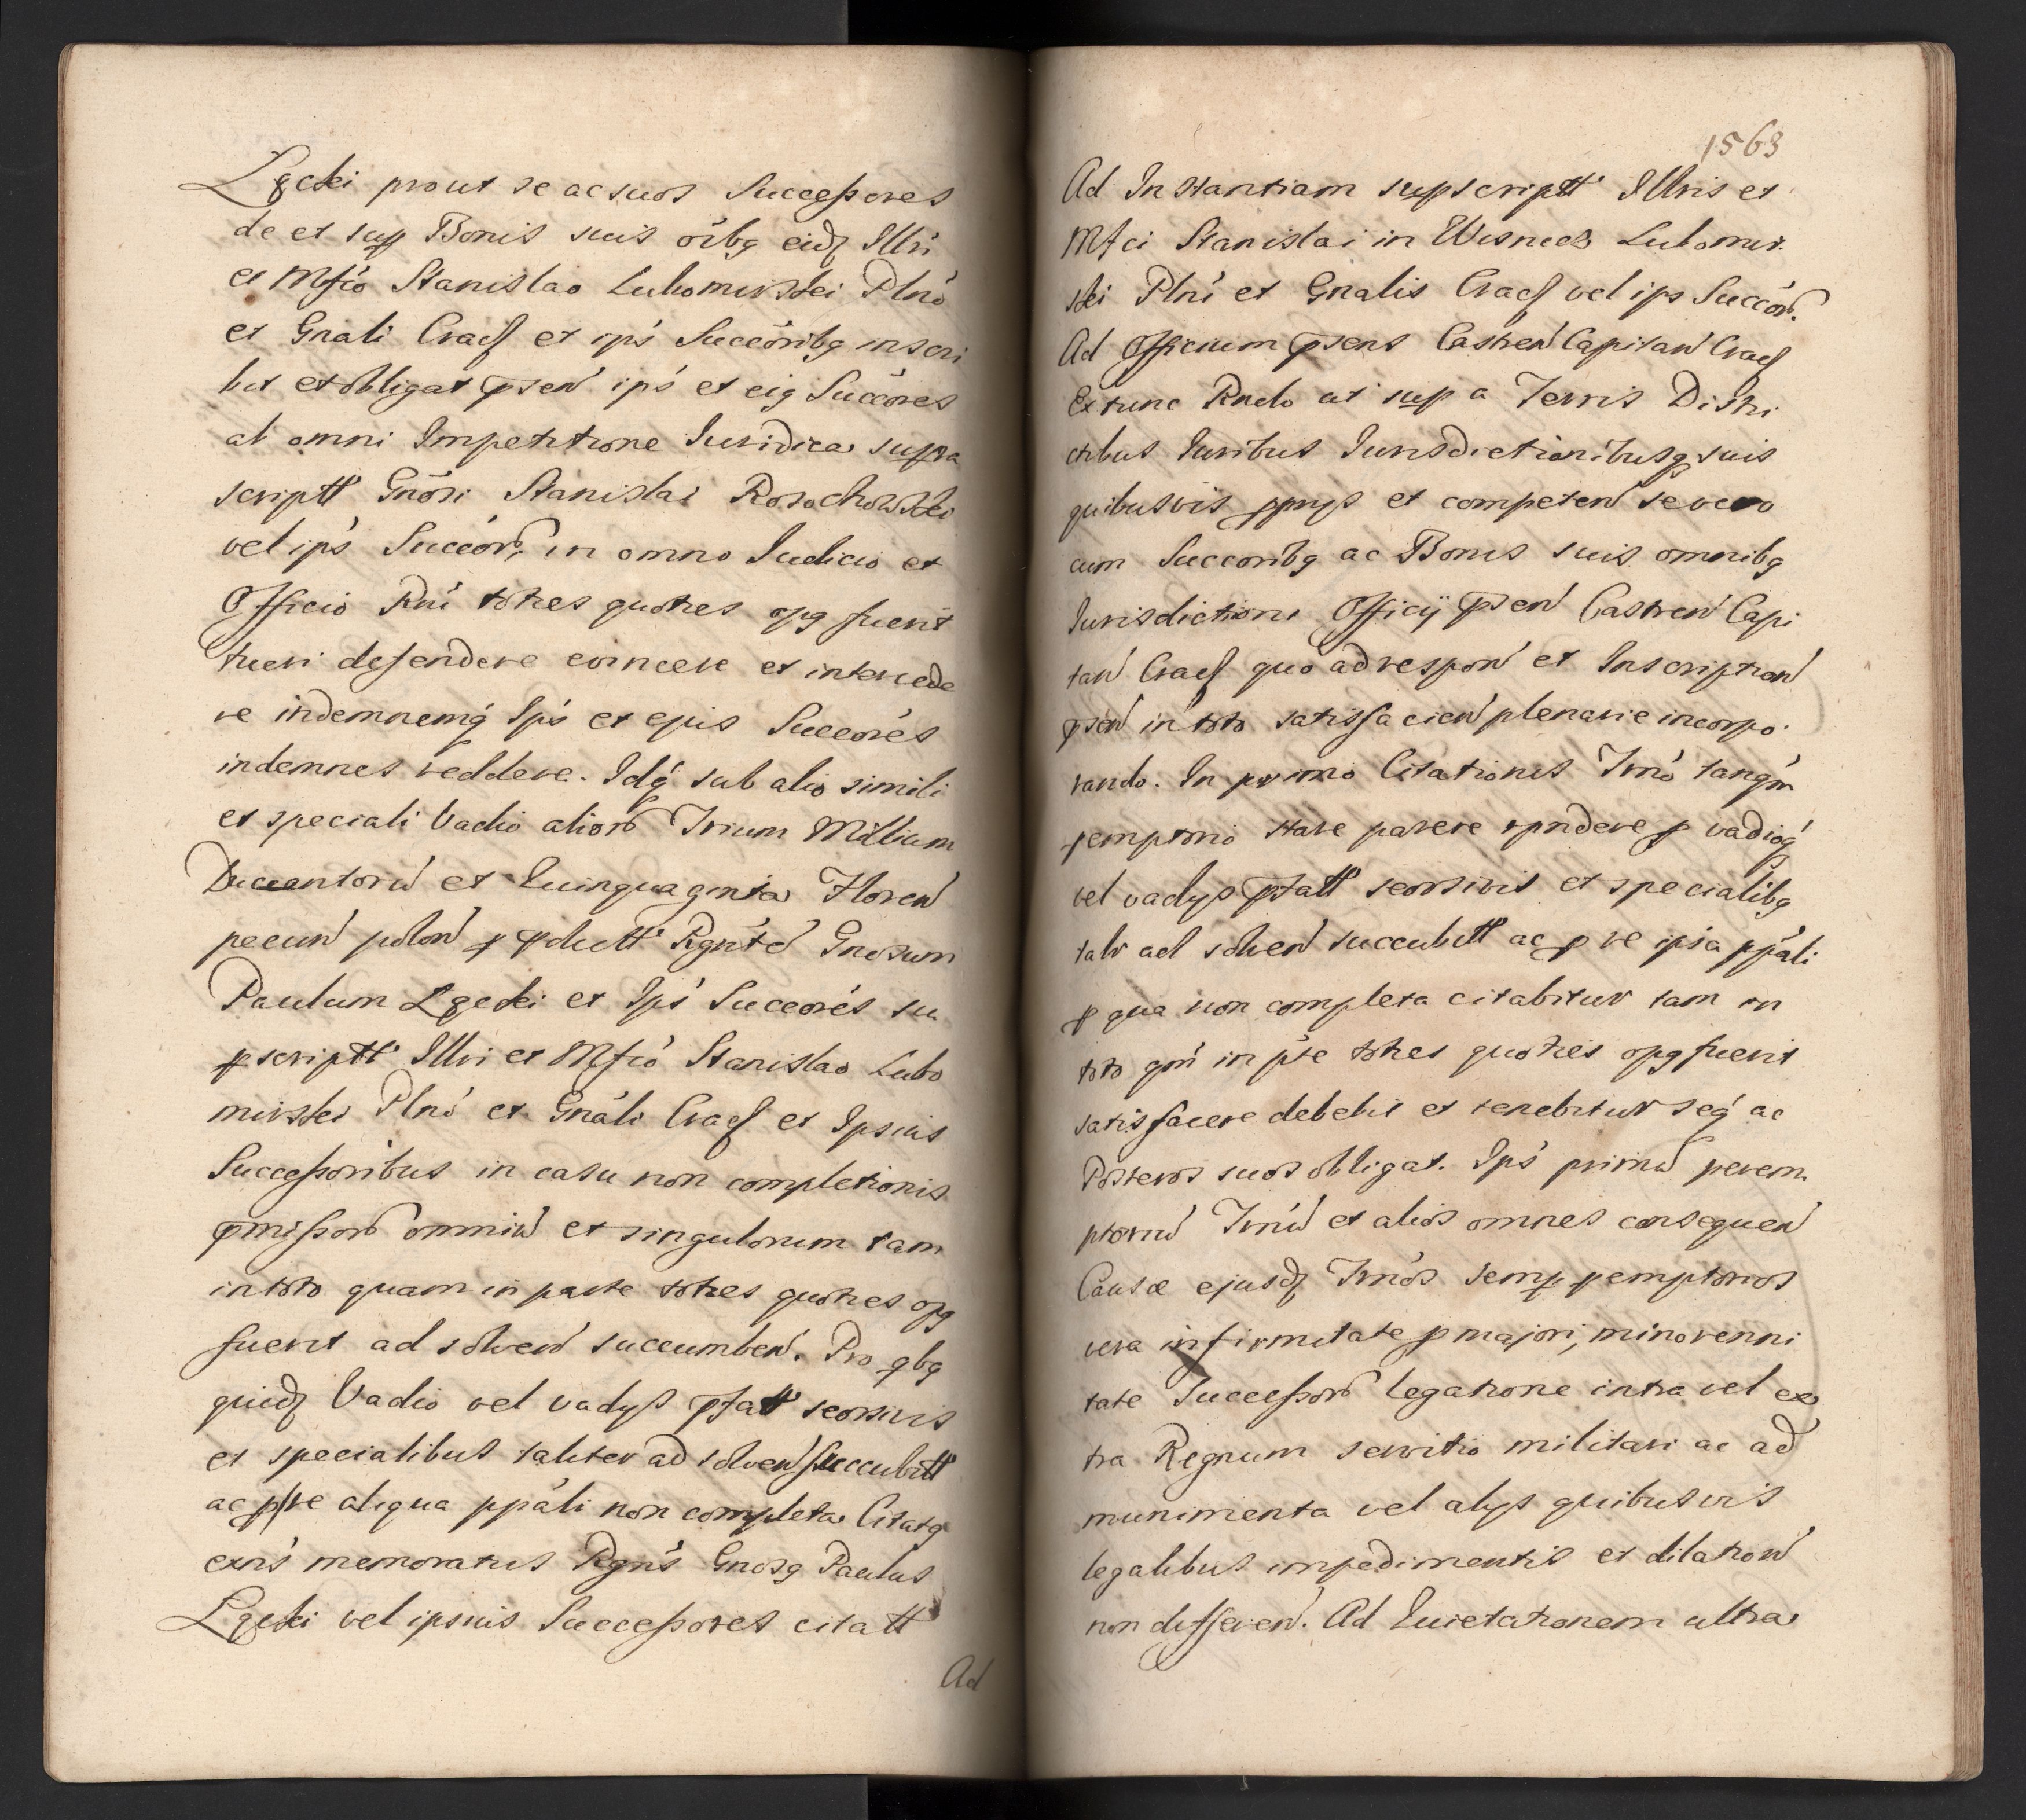 Lącki prout se ac suos Successores
de et sup Bonis suis oibg eidz Illri
et Mfco Stanislao Lubomirski Plno
et Gnali Cracz et ips Succoribg inscri
bit et obligat psen ips et eig Succores
ab omni Impetitione Iuridica supra
scriptt Gnosi Stanislai Rosochowski
vel ips Succor in omno Iudicio et
Officio Rni toties quoties opg fuerit
tueri defendere evincere et intercede
re indemnemq Ips et ejus Succores
indemnes reddere. Idq sub alio simili
et speciali Vadio alior Trium Millium
Ducentoru et Quinquaginta Floren
pecun polon p pdictt Rgnte Gnosum
Paulum Lącki et Ips Succores su
pscriptt Illri et Mfco Stanislao Lubo
mirski Plno et Gnali Cracz et Ipsius
Successoribus in casu non completionis
pmissor omniu et singulorum tam
in toto quam in parte toties quoties opg
fuerit ad solven succumben. Pro qbg
quidz Vadio vel vadys pfatt seorsivis
et specialibus taliter ad solven succubitt
ac p re aliqua ppali non completa Citatg
exns memoratus Rgns Gnosg Paulus
Lącki vel ipsius Successores citatt
Ad
1563
Ad Instantiam supscriptt Illris et
Mfci Stanislai in Wisnicz Lubomir.
ski Plni et Gnalis Cracz vel ips Succor.
Ad Officium psens Castren Capitan Cracz
Ex tunc Rndo ut sup a Terris Distri
ctibus Iuribus Iurisdictionibusq suis
quibusvis pprys et competen se vero
cum Succoribg ac Bonis suis omnibg
Iurisdictioni Officÿ psen Castren Capi
tan Cracz quo ad respon et Inscription
psen in toto satisfacien plenarie incorpo.
rando. In primo Citationis Trno tanqm
pemptorio stare parere rpndere p vadioq
vel vadys pfatt seorsivis et specialibg
talr ad solven succubitt ac p re ipsa ppali
p qua non completa citabitur tam in
toto qm in pte toties quoties opg fuerit
satisfacere debebit et tenebitur seq ac
Posteros suos obligat. Ips primu perem
ptoriu Trnu et alios omnes consequen
Causæ ejusdz Trnos semp pemptorios
vera infirmitate p majori, minorenni
tate Successor legatione intra vel ex
tra Regnum servitio militari ac ad
munimenta vel alys quibusvis
legalibus impedimentis et dilation
non differen. Ad Quietationem ultra